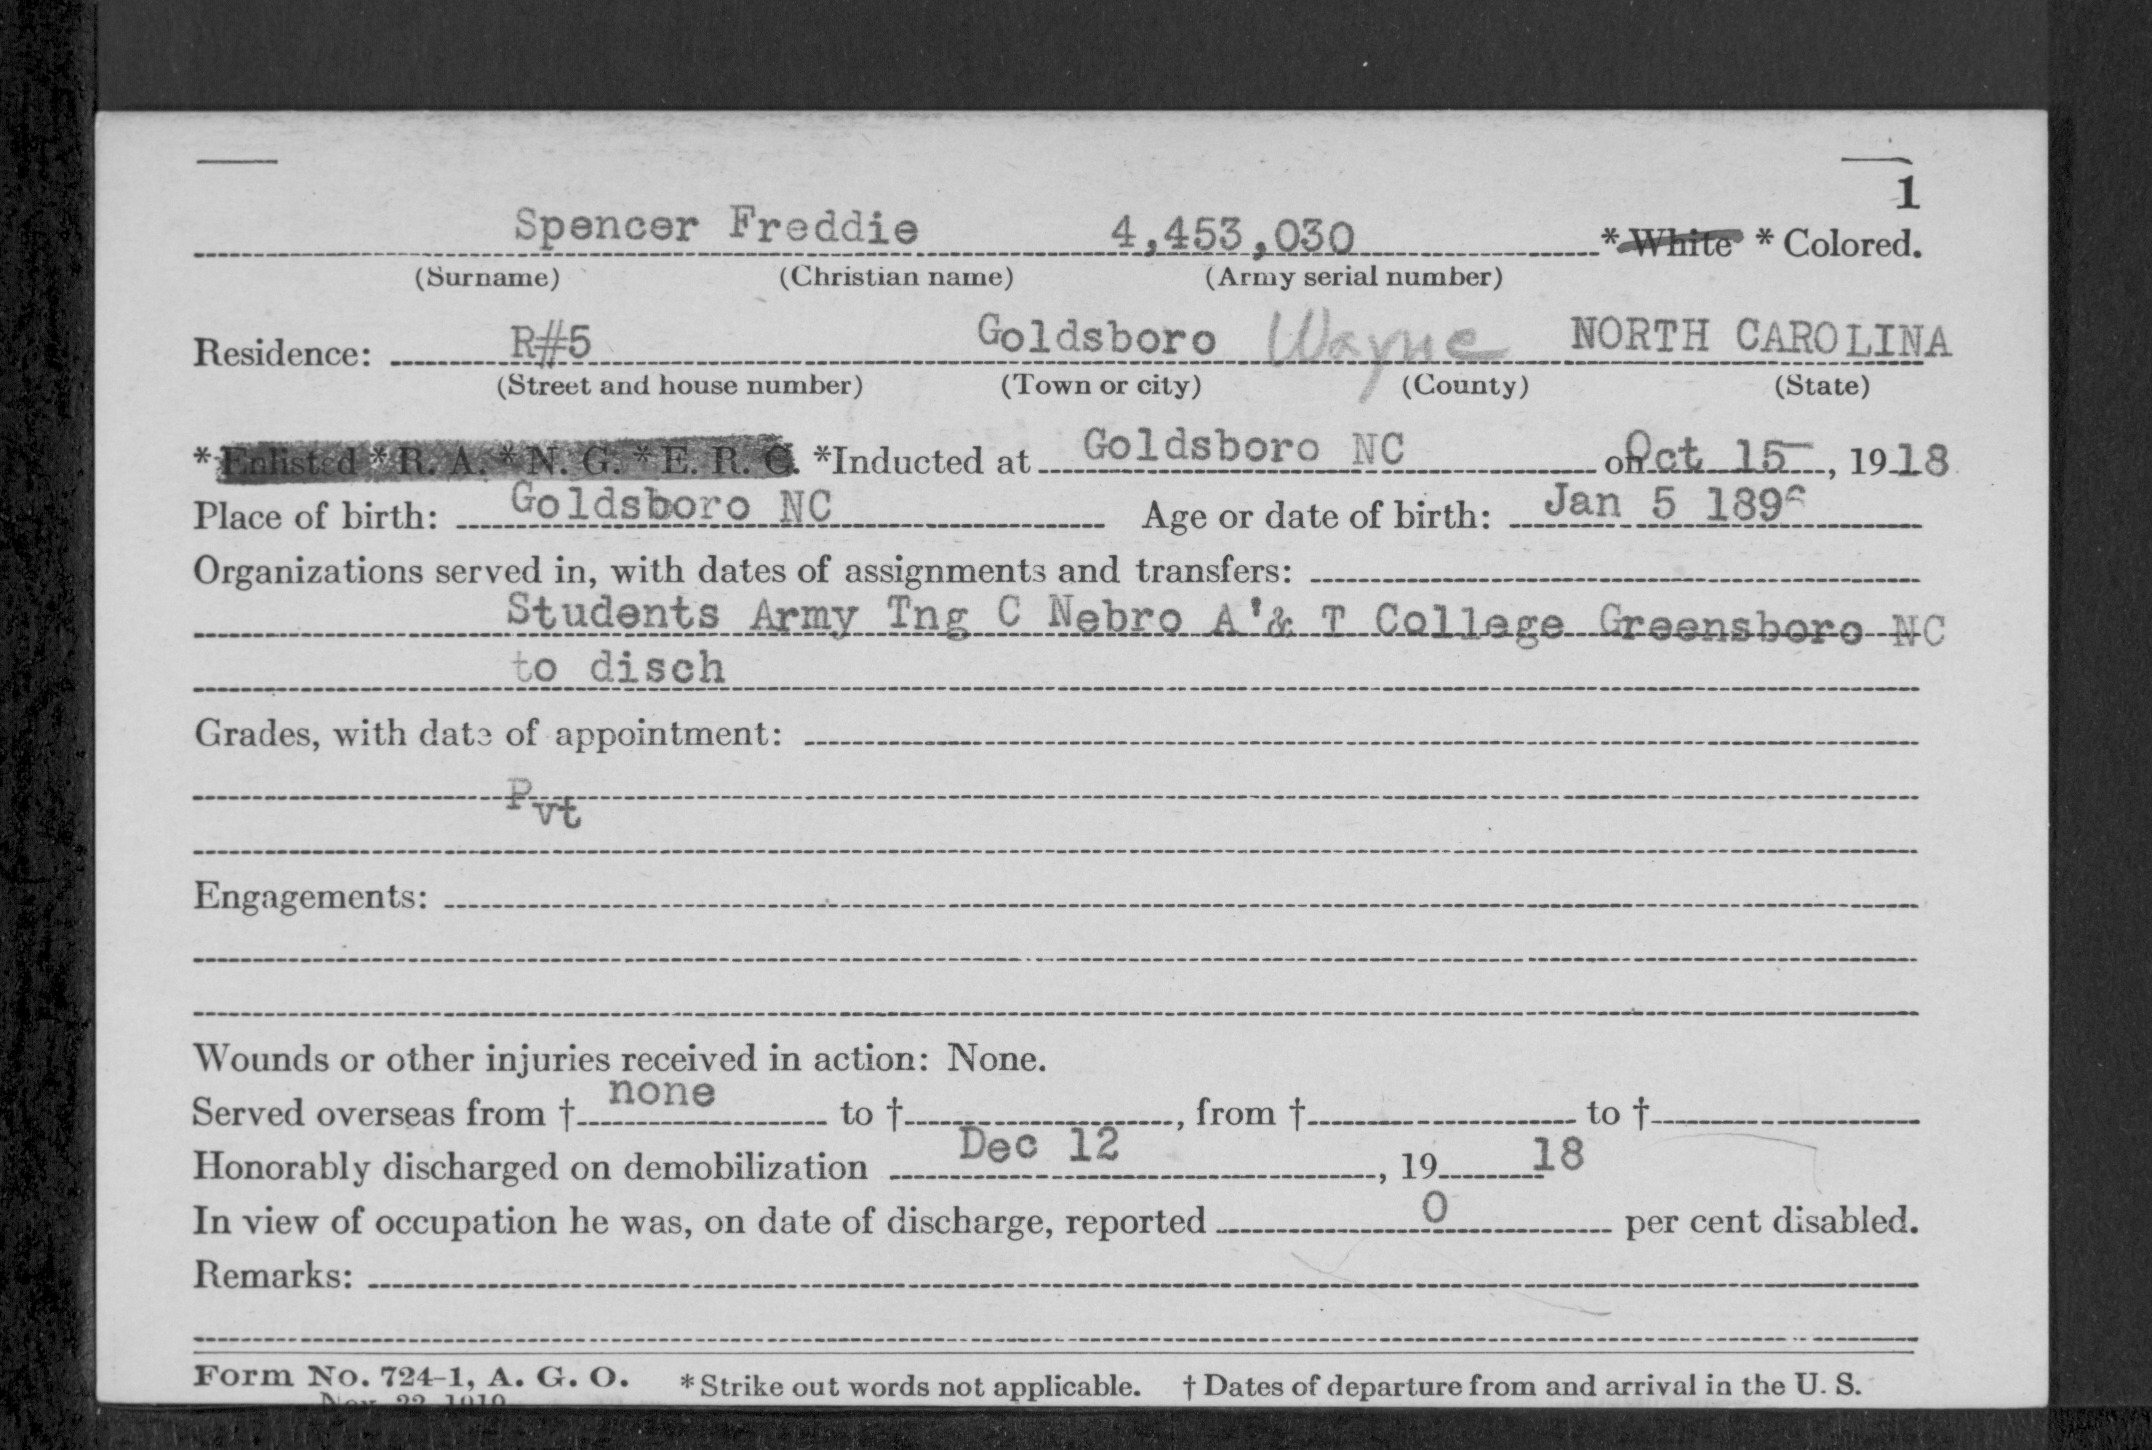 1
Spencer Freddie 4,453,030 * White * Colored.
(Surname) (Christian name) (Army serial number)
Residence: R#5 Goldsboro Wayne NORTH CAROLINA
(Street and house number) (Town or city) (County) (State)
* Enlisted * R. A. * N. G. * E. R. C. *Inducted at Goldsboro NC on Oct 15, 1918
Place of birth: Goldsboro NC Age or date of birth: Jan 5 1896
Organizations served in, with dates of assignments and transfers:
Students Army Tng C Nebro A'& T College Greensboro NC
to disch
Grades, with date of appointment:
Pvt
Engagements:
Wounds or other injuries received in action: None.
Served overseas from † none to †, from † to †
Honorably discharged on demobilization Dec 12, 19 18
In view of occupation he was, on date of discharge, reported 0 per cent disabled.
Remarks:
Form No. 724-1, A. G. O. * Strike out words not applicable. † Dates of departure from and arrival in the U. S.
Nov. 22, 1919